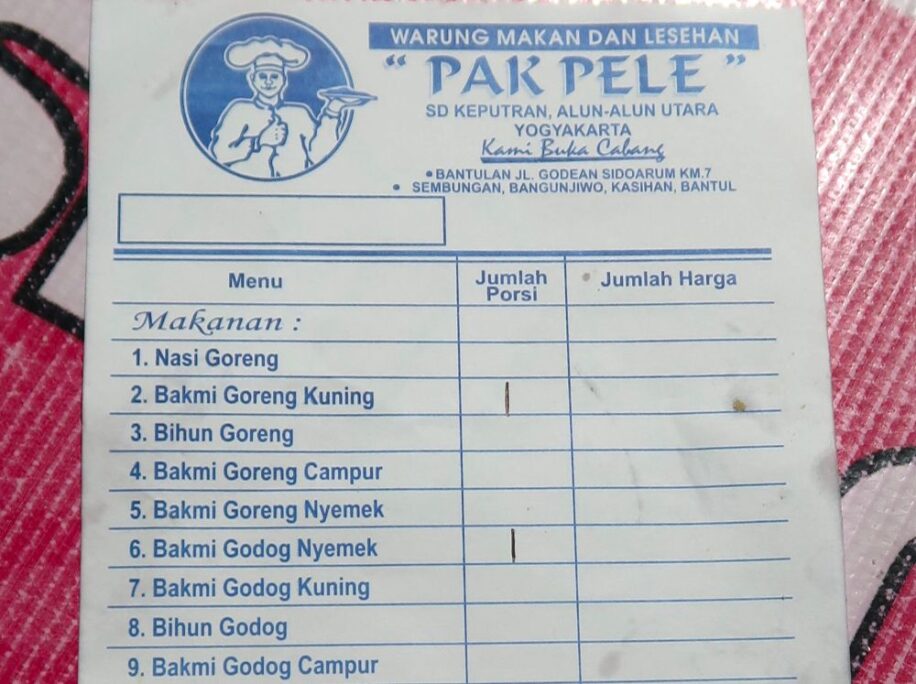 WARUNG MAKAN DAN LESEHAN
“ PAK PELE ”
SD KEPUTRAN, ALUN-ALUN UTARA
YOGYAKARTA
Kami Buka Cabang
• BANTULAN JL. GODEAN SIDOARUM KM.7
• SEMBUNGAN, BANGUNJIWO, KASIHAN, BANTUL
Menu Jumlah Porsi Jumlah Harga
Makanan :
1. Nasi Goreng
2. Bakmi Goreng Kuning |
3. Bihun Goreng
4. Bakmi Goreng Campur
5. Bakmi Goreng Nyemek
6. Bakmi Godog Nyemek |
7. Bakmi Godog Kuning
8. Bihun Godog
9. Bakmi Godog Campur